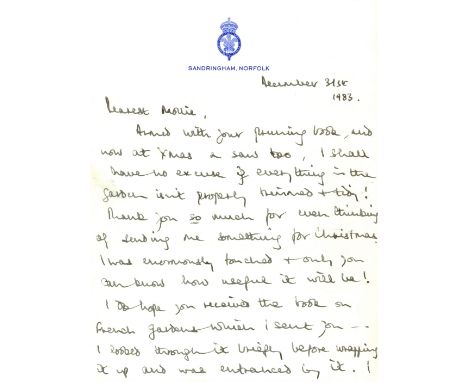 SANDRINGHAM, NORFOLK
December 31st
1983.
Dearest Mollie,
Armed with your pruning book, and
now at Xmas a saw too, I shall
have no excuse if everything in the
garden isn't properly trimmed + tidy!
Thank you so much for even thinking
of sending me something for Christmas.
I was enormously touched + only you
can know how useful it will be!
I do hope you received the book on
French gardens which I sent you --
I looked through it briefly before wrapping
it up and was entranced by it. I